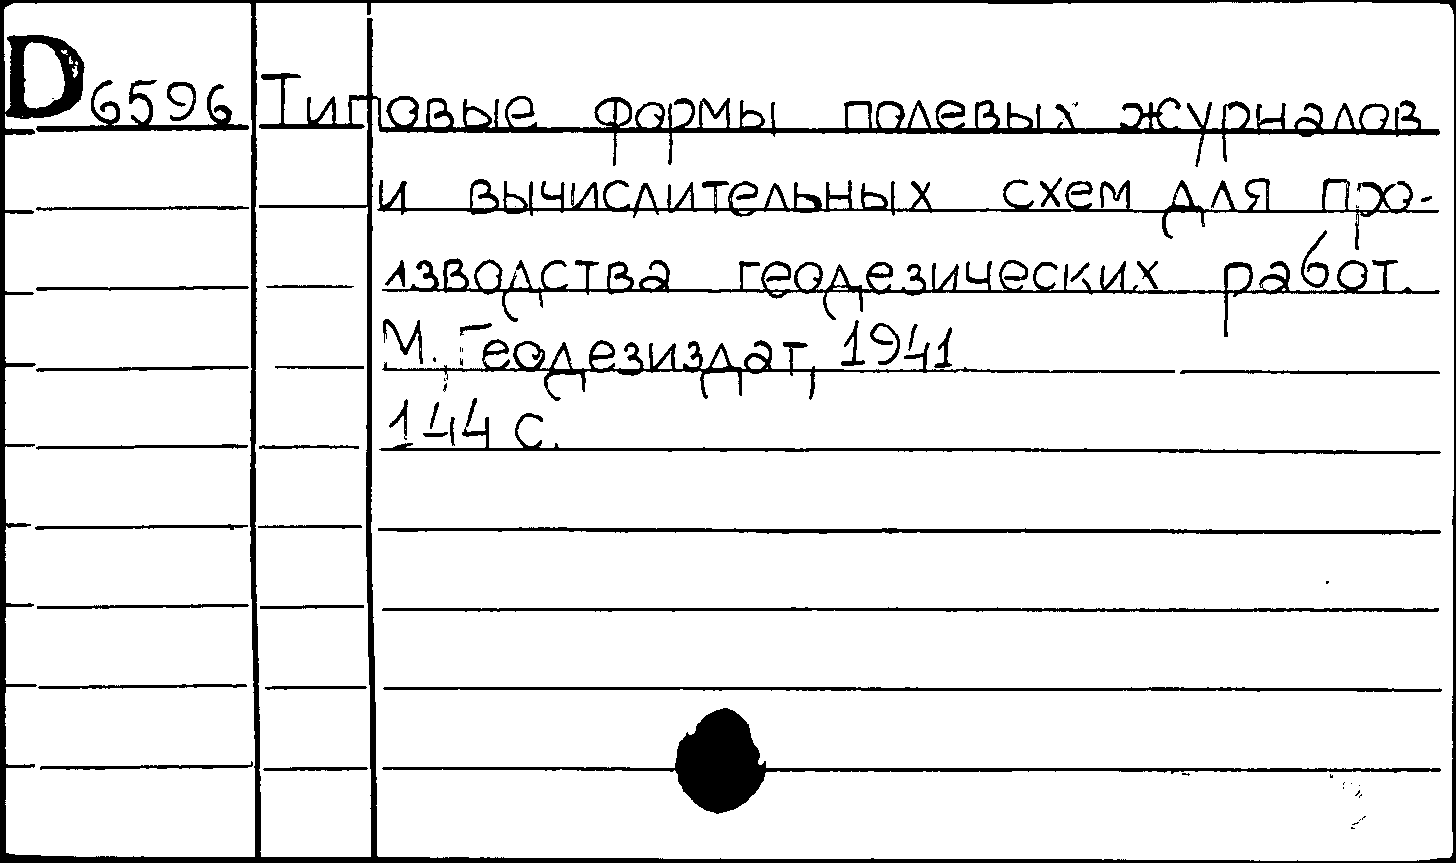 D6596 Типовые формы полевых журналов
и вычислительных схем для про-
изводства геодезических работ.
М., Геодезиздат, 1941
144 с.